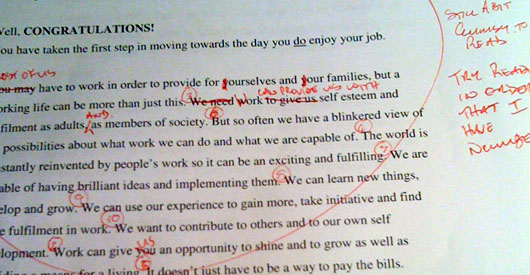 Well, CONGRATULATIONS!
You have taken the first step in moving towards the day you do enjoy your job.
most of us
You may have to work in order to provide for yourselves and your families, but a
can provide us with
working life can be more than just this. We need work to give us self esteem and
and
fulfilment as adults, as members of society. But so often we have a blinkered view of
possibilities about what work we can do and what we are capable of. The world is
constantly reinvented by people's work so it can be an exciting and fulfilling. We are
capable of having brilliant ideas and implementing them. We can learn new things,
develop and grow. We can use our experience to gain more, take initiative and find
fulfilment in work. We want to contribute to others and to our own self
development. Work can give you an opportunity to shine and to grow as well as
us
a means for a living. It doesn't just have to be a way to pay the bills.
STILL A BIT
CLUMSY TO
READ
TRY READ
IN ORDER
THAT I
HAVE